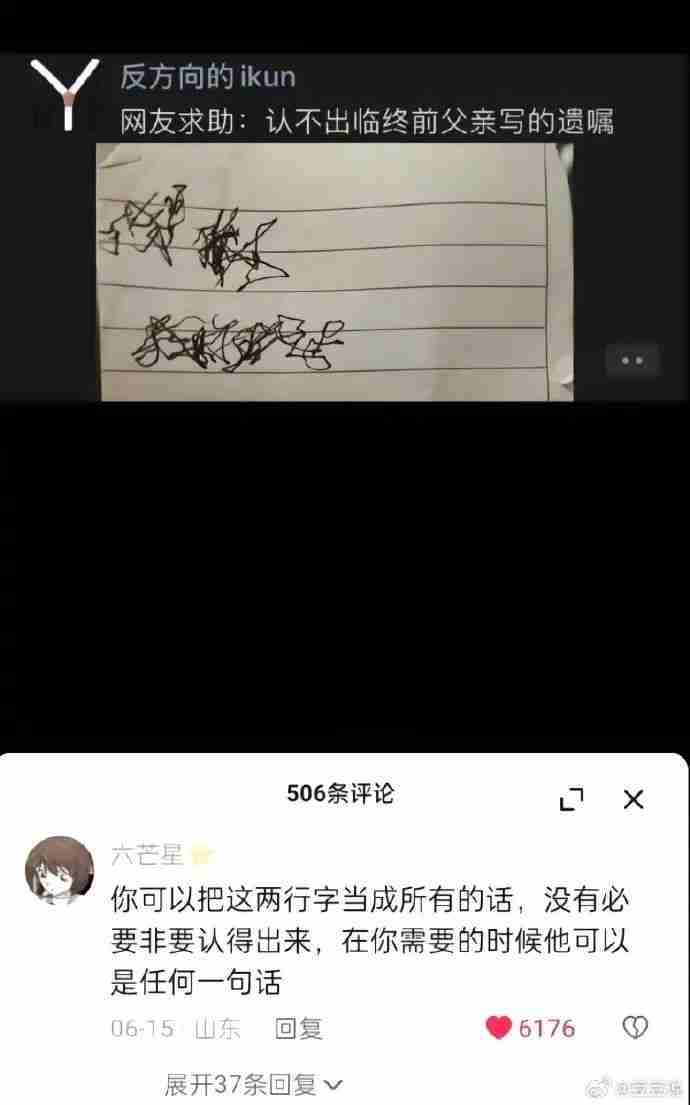 反方向的ikun
网友求助：认不出临终前父亲写的遗嘱
506条评论
六芒星
你可以把这两行字当成所有的话，没有必
要非要认得出来，在你需要的时候他可以
是任何一句话
06-15 山东 回复
6176
展开37条回复